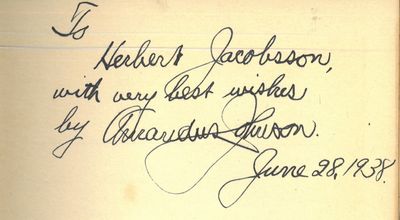 To
Herbert Jacobsson,
with very best wishes
by Amandus Johnson.
June 28, 1938.